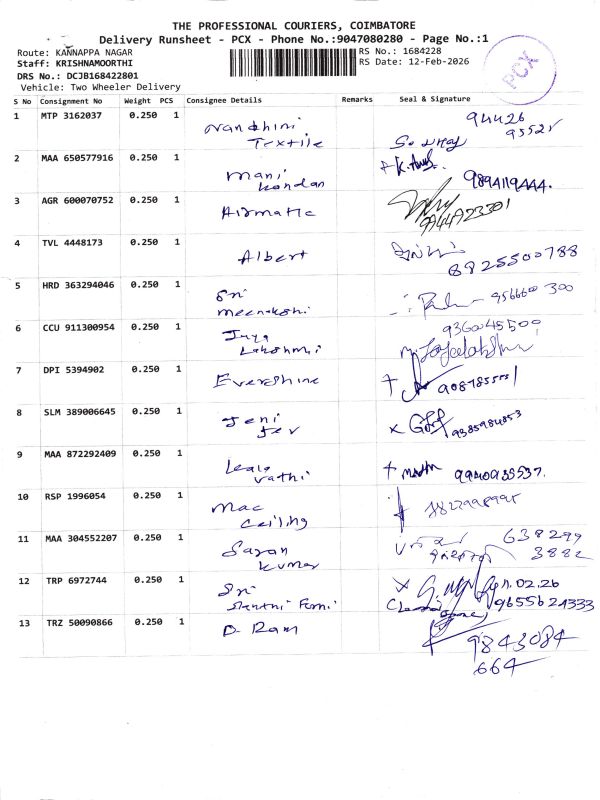 THE PROFESSIONAL COURIERS, COIMBATORE
Delivery Runsheet - PCX - Phone No.:9047080280 - Page No.:1
Route: KANNAPPA NAGAR
RS No.: 1684228
Staff: KRISHNAMOORTHI
RS Date: 12-Feb-2026
DRS No.: DCJB168422801
Vehicle: Two Wheeler Delivery
PCX
S No Consignment No Weight PCS Consignee Details Remarks Seal & Signature
1 MTP 3162037 0.250 1 Nandhini 94426
Textile 93525
2 MAA 650577916 0.250 1 Mani
kandan 9894119444.
3 AGR 600070752 0.250 1 Airmatic 9944923301
4 TVL 4448173 0.250 1 Albert 6825500788
5 HRD 363294046 0.250 1 Sri
meenakshi 9566600300
6 CCU 911300954 0.250 1 Jaya 9360045500
Lakshmi
7 DPI 5394902 0.250 1 Evershine
8 SLM 389006645 0.250 1 Jeni 9385984853
Jev
9 MAA 872292409 0.250 1 Leela
vathi 9940935537.
10 RSP 1996054 0.250 1 Mac
Ceiling
11 MAA 304552207 0.250 1 Saran 638299
kumar 3882
12 TRP 6972744 0.250 1 Sri
9655624333
13 TRZ 50090866 0.250 1 D Ram 9843084
664